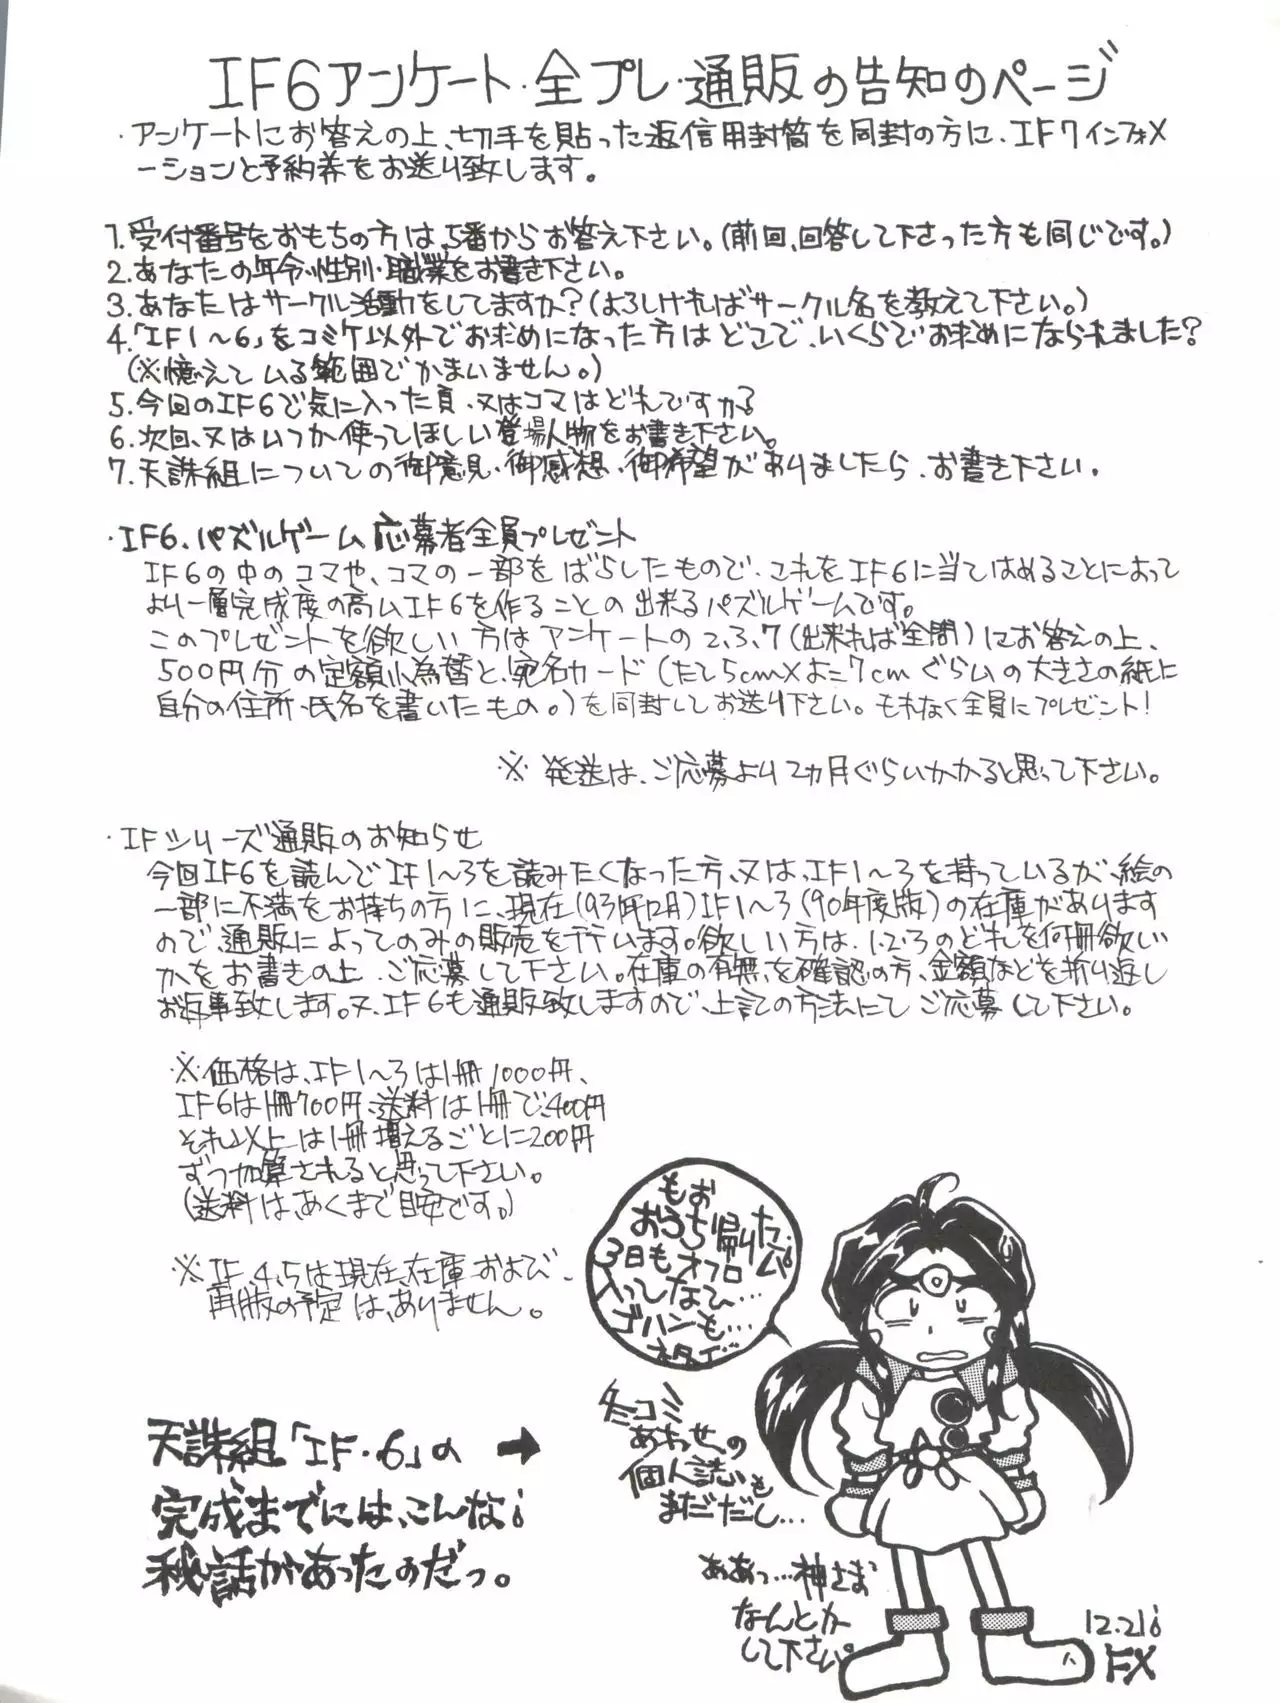 IF6アンケート·全プレ·通販の告知のページ
·アンケートにお答えの上、切手を貼った返信用封筒を同封の方に、IF7インフォメ
ーションと予約券をお送り致します。
1.受付番号をおもちの方は、5番からお答え下さい。(前回、回答して下さった方も同じです。)
2.あなたの年令·性別·職業をお書き下さい。
3.あなたはサークル活動をしてますか?(よろしければサークル名を教えて下さい。)
4.「IF1~6」をコミケ以外でお求めになった方はどこで、いくらでお求めになられましたか?
(※憶えている範囲でかまいません。)
5.今回のIF6で気に入った頁、又はコマはどれですか?
6.次回、又はいつか使ってほしい登場人物をお書き下さい。
7.天誅組についての御意見·御感想·御希望がありましたら、お書き下さい。
·IF6.パズルゲーム応募者全員プレゼント
IF6の中のコマや、コマの一部をばらしたもので、これをIF6に当てはめることによって
より一層完成度の高いIF6を作ることの出来るパズルゲームです。
このプレゼントを欲しい方はアンケートの2、3、7(出来れば全問)にお答えの上、
500円分の定額小為替と、宛名カード(たて5cm×よこ7cmぐらいの大きさの紙に
自分の住所、氏名を書いたもの。)を同封してお送り下さい。もれなく全員にプレゼント!
※発送は、ご応募より2ヵ月ぐらいかかると思って下さい。
·IFシリーズ通販のお知らせ
今回IF6を読んでIF1~3を読みたくなった方、又は、IF1~3を持っているが、絵の
一部に不満をお持ちの方に、現在(93年12月)IF1~3(90年度版)の在庫があります
ので、通販によってのみの販売を行います。欲しい方は、1·2·3のどれを何冊欲しい
かをお書きの上、ご応募して下さい。在庫の有無を確認の方、金額などを折り返し
お返事致します。又、IF6も通販致しますので、上記の方法にてご応募して下さい。
※価格は、IF1~3は1冊1000円、
IF6は1冊700円、送料は1冊で、400円
それ以上は1冊増えるごとに200円
ずつ加算されると思って下さい。
(送料は、あくまで目安です。)
※IF、4、5は現在、在庫および、
再版の予定は、ありません。
もお
おうち帰りたい
3日もオフロ
入ってなひ…
ゴハンも…
冬コミ
あわせの
個人誌も
まだだし…
天誅組「IF·6」の ➡
完成までには、こんな
秘話があったのだっ。
ああっ…神さま
なんとか
して下さい。
12.21
FX